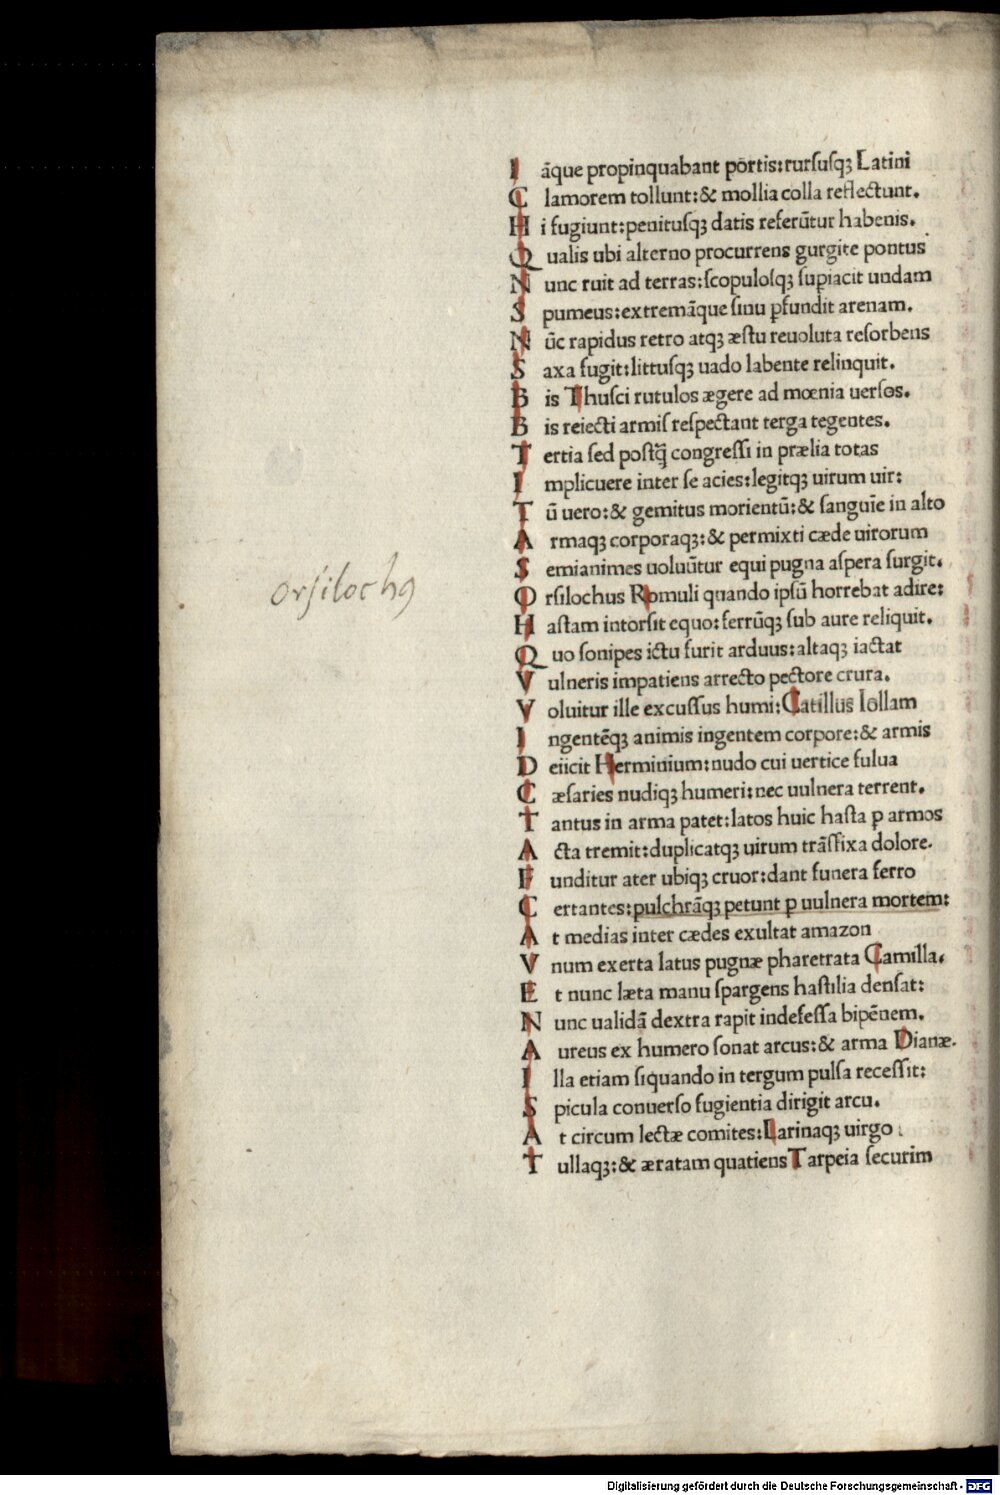 I āque propinquabant portis:rursusqꝫ Latini
C lamorem tollunt:& mollia colla reflectunt.
H i fugiunt:penitusqꝫ datis referūtur habenis.
Q ualis ubi alterno procurrens gurgite pontus
N unc ruit ad terras:scopulosqꝫ supiacit undam
S pumeus:extremāque sinu ꝑfundit arenam.
N ūc rapidus retro atqꝫ æstu reuoluta resorbens
S axa fugit:littusqꝫ uado labente relinquit.
B is Thusci rutulos ægere ad mœnia uersos.
B is reiecti armis respectant terga tegentes.
T ertia sed postq̄ congressi in prælia totas
I mplicuere inter se acies:legitqꝫ uirum uir:
T ū uero:& gemitus morientū:& sanguīe in alto
A rmaqꝫ corporaqꝫ:& permixti cæde uirorum
S emianimes uoluūtur equi pugna aspera surgit.
orsilochꝯ
O rsilochus Romuli quando ipsū horrebat adire:
H astam intorsit equo:ferrūqꝫ sub aure reliquit.
Q uo sonipes ictu furit arduus:altaqꝫ iactat
V ulneris impatiens arrecto pectore crura.
V oluitur ille excussus humi:Catillus Iollam
I ngentēqꝫ animis ingentem corpore:& armis
D eiicit Herminium:nudo cui uertice fulua
C æsaries nudiqꝫ humeri:nec uulnera terrent.
T antus in arma patet:latos huic hasta ꝑ armos
A cta tremit:duplicatqꝫ uirum trāsfixa dolore.
F unditur ater ubiqꝫ cruor:dant funera ferro
C ertantes:pulchrāqꝫ petunt ꝑ uulnera mortem:
A t medias inter cædes exultat amazon
V num exerta latus pugnæ pharetrata Camilla.
E t nunc læta manu spargens hastilia densat:
N unc ualidā dextra rapit indefessa bipēnem.
A ureus ex humero sonat arcus:& arma Dianæ.
I lla etiam siquando in tergum pulsa recessit:
S picula conuerso fugientia dirigit arcu.
A t circum lectæ comites:Larinaqꝫ uirgo :
T ullaqꝫ:& æratam quatiens Tarpeia securim
Digitalisierung gefördert durch die Deutsche Forschungsgemeinschaft - DFG